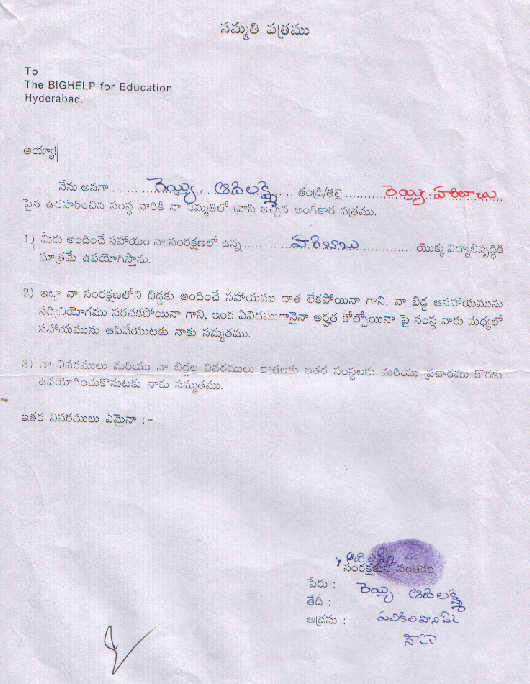 సమ్మతి పత్రము
To
The BIGHELP for Education
Hyderabad.
అయ్యా
నేను అనగా ........ రెయ్యి ఆదిలక్ష్మి .... తండ్రి/తల్లి ........ రెయ్యి హరిబాబు
పైన ఉదహరించిన సంస్థ వారికి నా సమ్మతితో వ్రాసి ఇచ్చిన అంగీకార పత్రము.
1) మీరు అందించే సహాయం నా సంరక్షణలో ఉన్న ........ హరిబాబు ........ యొక్క విద్యాభివృద్ధికి
మాత్రమే ఉపయోగిస్తాను.
2) ఇలా నా సంరక్షణలోని బిడ్డకు అందించే సహాయమునకు దాత లేకపోయినా గాని, నా బిడ్డ ఆ సహాయమును
సద్వినియోగము పరచకపోయినా గాని, ఇంక ఏవిధముగానైనా అర్హత కోల్పోయినా పై సంస్థ వారు మధ్యలో
సహాయమును ఆపివేయుటకు నాకు సమ్మతము.
3) నా వివరములు మరియు నా బిడ్డల వివరములు దాతలకు ఇతర సంస్థలకు మరియు ప్రచారము కొరకు
ఉపయోగించుకొనుటకు నాకు సమ్మతము.
ఇతర వివరములు ఏమైనా :-
సంరక్షకుని సంతకం
పేరు : రెయ్యి ఆదిలక్ష్మి
తేదీ :
అడ్రసు :